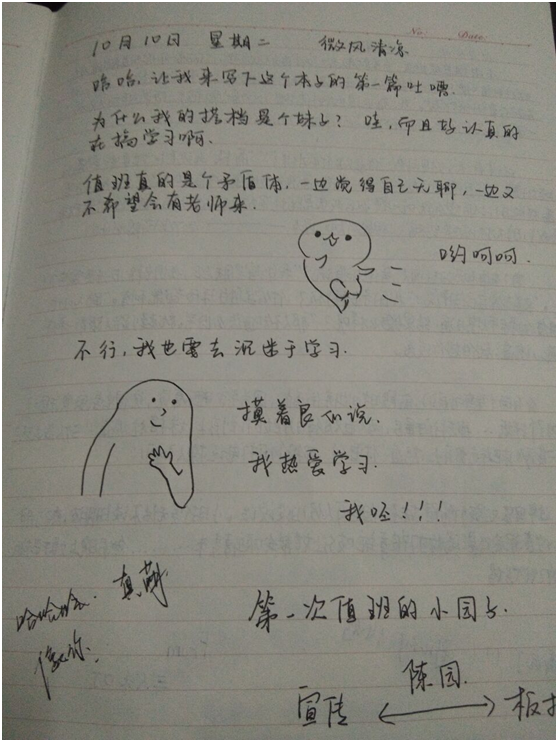 No.
Date
10月10日 星期二 微风清凉
哈哈，让我来写下这个本子的第一篇吐嘈.
为什么我的搭档是个妹子？哇，而且好认真的
在搞学习啊.
值班真的是个矛盾体，一边觉得自己无聊，一边又
不希望会有老师来.
哟呵呵.
不行，我也要去沉迷于学习.
摸着良心说.
我热爱学习.
我呸！！！
哈哈哈. 真萌
第一次值班的小园子.
陈园.
宣传 板